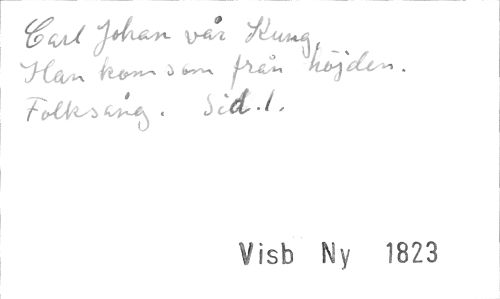 Carl Johan vår Kung,
Han kom som från höjden.
Folksång. Sid. 1.
Visb Ny 1823